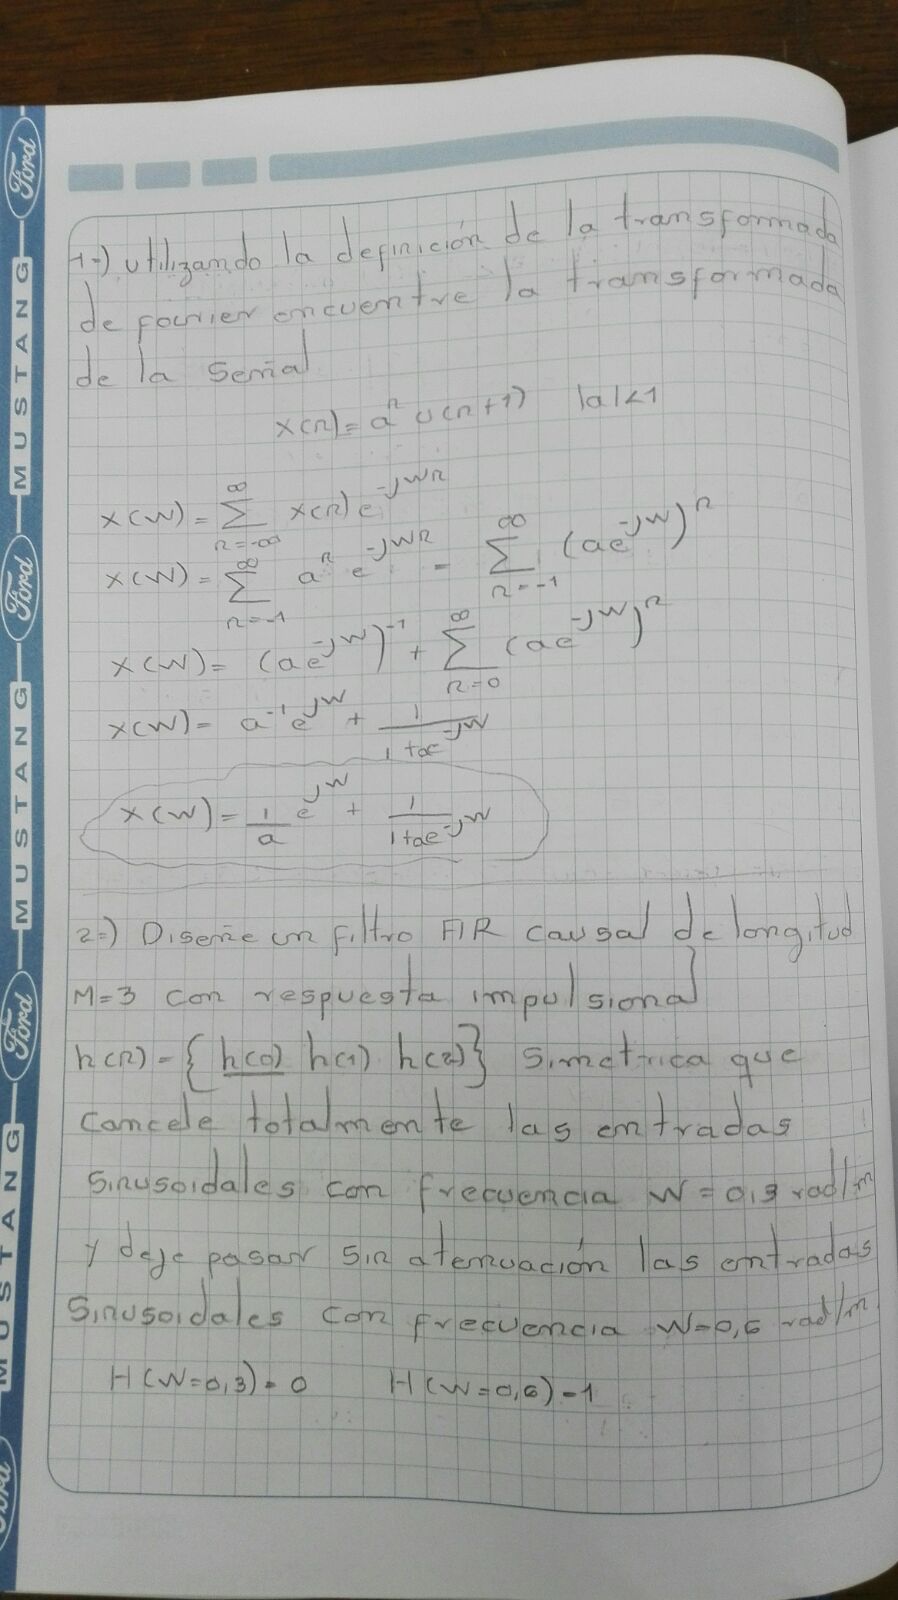 1-) utilizando la definición de la transformada
de fourier encuentre la transformada
de la señal
x(n) = aⁿ u(n+1)   |a|<1
X(W) = ∑_{n=-∞}^{∞} x(n) e^{-jWn}
X(W) = ∑_{n=-1}^{∞} aⁿ e^{-jWn} = ∑_{n=-1}^{∞} (ae^{-jW})ⁿ
X(W) = (ae^{-jW})^{-1} + ∑_{n=0}^{∞} (ae^{-jW})ⁿ
X(W) = a^{-1} e^{jW} + 1/(1+ae^{-jW})
X(W) = 1/a e^{jW} + 1/(1+ae^{-jW})
2-) Diseñe un filtro FIR causal de longitud
M=3 con respuesta impulsional
h(n) = {h(0) h(1) h(2)} simetrica que
cancele totalmente las entradas
sinusoidales con frecuencia W = 0,3 rad/m
y deje pasar sin atenuación las entradas
sinusoidales con frecuencia W=0,6 rad/m
H(W=0,3) = 0   H(W=0,6) = 1
Ford MUSTANG Ford MUSTANG Ford MUSTANG Ford